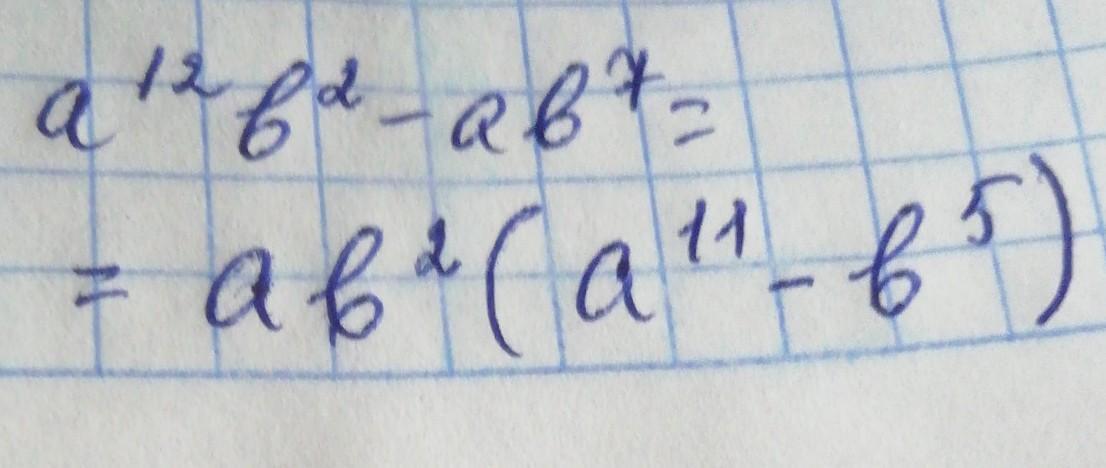 a¹²b² - ab⁷ =
= ab²(a¹¹ - b⁵)